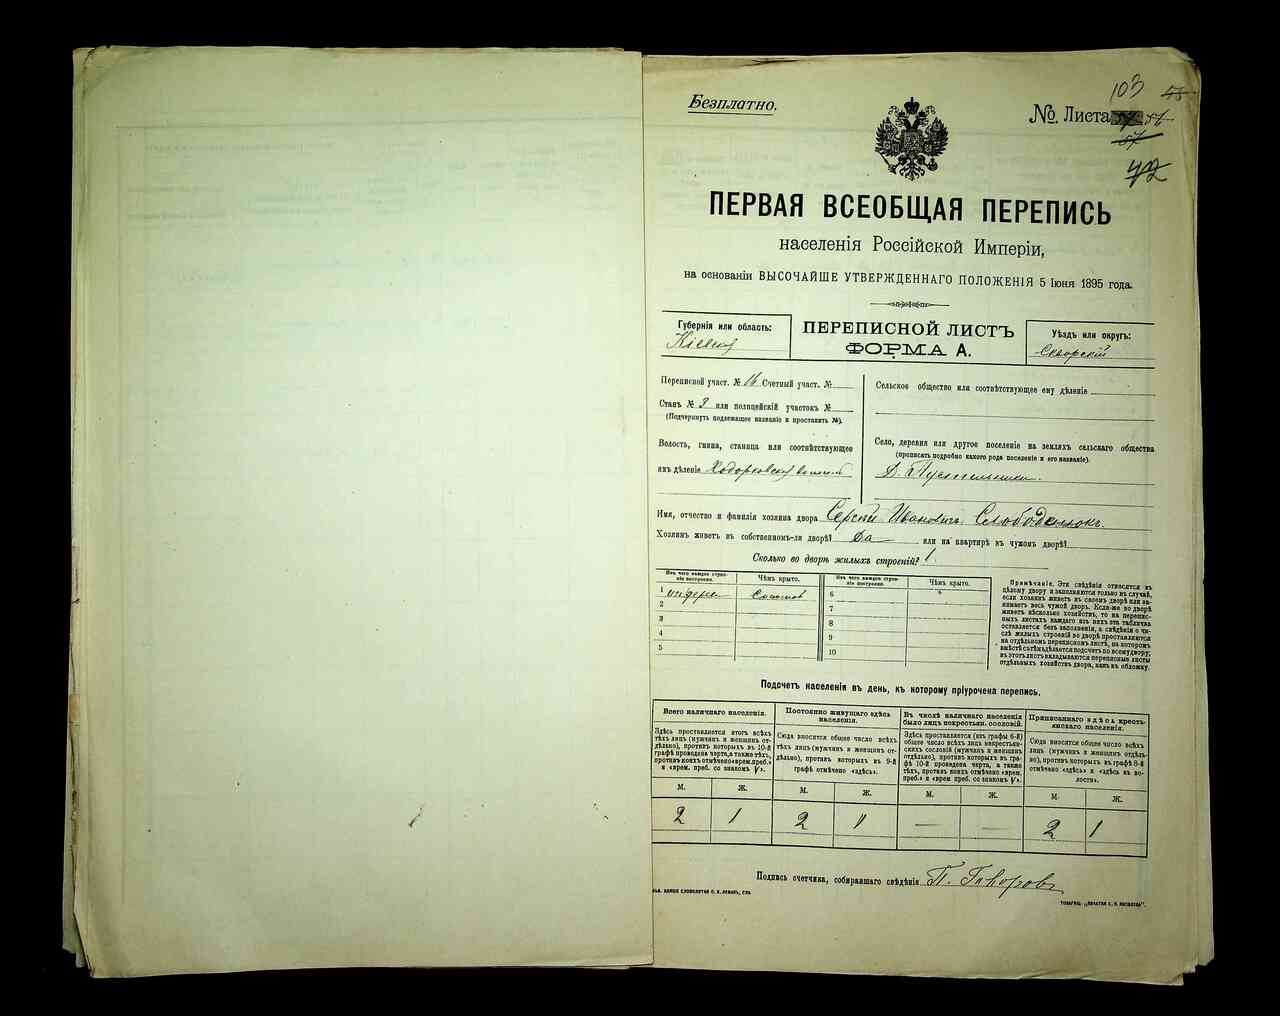 Безплатно.
103
№. Листа
72
ПЕРВАЯ ВСЕОБЩАЯ ПЕРЕПИСЬ
населенія Россійской Имперіи,
на основаніи ВЫСОЧАЙШЕ УТВЕРЖДЕННАГО ПОЛОЖЕНІЯ 5 Іюня 1895 года.
Губернія или область:
ПЕРЕПИСНОЙ ЛИСТЪ
ФОРМА А.
Уѣздъ или округъ:
Сквирскій
Переписной участ. № 16 Счетный участ. №
Станъ № 3 или полицейскій участокъ №
(Подчеркнуть подлежащее названіе и проставить №).
Волость, гмина, станица или соотвѣтствующее
имъ дѣленіе Ходорковская
Сельское общество или соотвѣтствующее ему дѣленіе
Село, деревня или другое поселеніе на земляхъ сельскаго общества
(прописать подробно какого рода поселеніе и его названіе).
Д. Пустельники.
Имя, отчество и фамилія хозяина двора Сергій Ивановичъ Слободянюкъ.
Хозяинъ живетъ въ собственномъ-ли дворѣ? Да или на квартирѣ въ чужомъ дворѣ?
Сколько во дворѣ жилыхъ строеній? 1
Изъ чего каждое строеніе построено.
Чѣмъ крыто.
Изъ чего каждое строеніе построено.
Чѣмъ крыто.
1 Соломой 6
2 7
3 8
4 9
5 10
Примѣчаніе. Эти свѣдѣнія относятся къ
цѣлому двору и заполняются только въ случаѣ,
если хозяинъ живетъ въ своемъ дворѣ или занимаетъ
весь чужой дворъ. Если-же во дворѣ
живетъ нѣсколько хозяйствъ, то на переписныхъ
листахъ каждаго изъ нихъ эта табличка
оставляется безъ заполненія, а свѣдѣнія о числѣ
жилыхъ строеній во дворѣ проставляются
на отдѣльномъ переписномъ листѣ, на которомъ
вмѣстѣ съ тѣмъ дѣлается подсчетъ по всему двору;
въ этотъ листъ вкладываются переписные листы
отдѣльныхъ хозяйствъ двора, какъ въ обложку.
Подсчетъ населенія въ день, къ которому пріурочена перепись.
Всего наличнаго населенія.
Постоянно живущаго здѣсь населенія.
Въ числѣ наличнаго населенія было лицъ некрестьян. сословій.
Приписаннаго здѣсь крестьянскаго населенія.
Здѣсь проставляется итогъ всѣхъ
тѣхъ лицъ (мужчинъ и женщинъ отдѣльно),
противъ которыхъ въ 10-й
графѣ проведена черта, а также тѣхъ,
противъ коихъ отмѣчено «врем. преб.»
и «врем. преб. со знакомъ V».
Сюда вносится общее число всѣхъ
тѣхъ лицъ (мужчинъ и женщинъ отдѣльно),
противъ которыхъ въ 9-й
графѣ отмѣчено «здѣсь».
Здѣсь проставляется (изъ графы 6-й)
общее число всѣхъ лицъ некрестьянскихъ
сословій (мужчинъ и женщинъ
отдѣльно), противъ которыхъ въ графѣ
10-й проведена черта, а также
тѣхъ, противъ коихъ отмѣчено «врем.
преб.» и «врем. преб. со знакомъ V».
Сюда вносится общее число всѣхъ
лицъ (мужчинъ и женщинъ отдѣльно),
противъ которыхъ въ графѣ 8-й
отмѣчено «здѣсь» и «здѣсь въ волости».
М. Ж. М. Ж. М. Ж. М. Ж.
2 1 2 1 — — 2 1
Подпись счетчика, собиравшаго свѣдѣнія П. Говоровъ